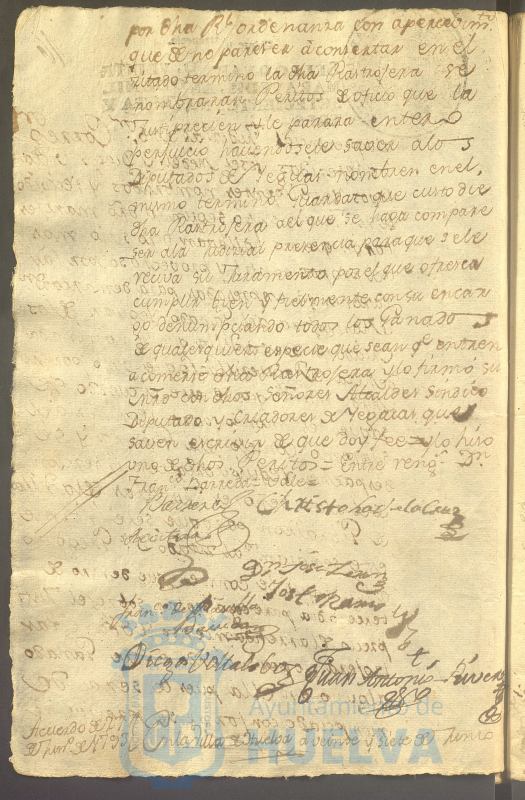 por dha Rl ordenanza con apercevimto
que de no parecer a consertar en el
citado termino la dha Rastrojera se
nombraran Peritos de oficio que la
Juspresien y le parara entero
perjuicio haciendosele saver a los
Diputados de Yeguas nombren en el
mismo termino Guarda que custodie
dha Rastrojera a el que se haga compare
ser a la Judicial presencia para que se le
reciva su Juramento por el que ofresca
cumplir bien y fielmente con su encar
go denunpciando todos los Ganados
de qualesquiera especie que sean qe entren
a comerse dha Rastrojera y lo firmó su
mrd con dhos Señores Alcaldes Sindico
Diputado y Criadores de Yeguas que
saven escrivir de que doy fee = y lo hiso
uno de dhos Peritos = Entre rengs Dn
Franco Barreda = Vale =
Christoval de la Cruz
Dn Jose
Jose Ramos
Diego
Juan Antonio
Acuerdo de
de Jun. de 1793
En la villa de Huelva a veinte y siete de Junio
Ayuntamiento de
HUELVA